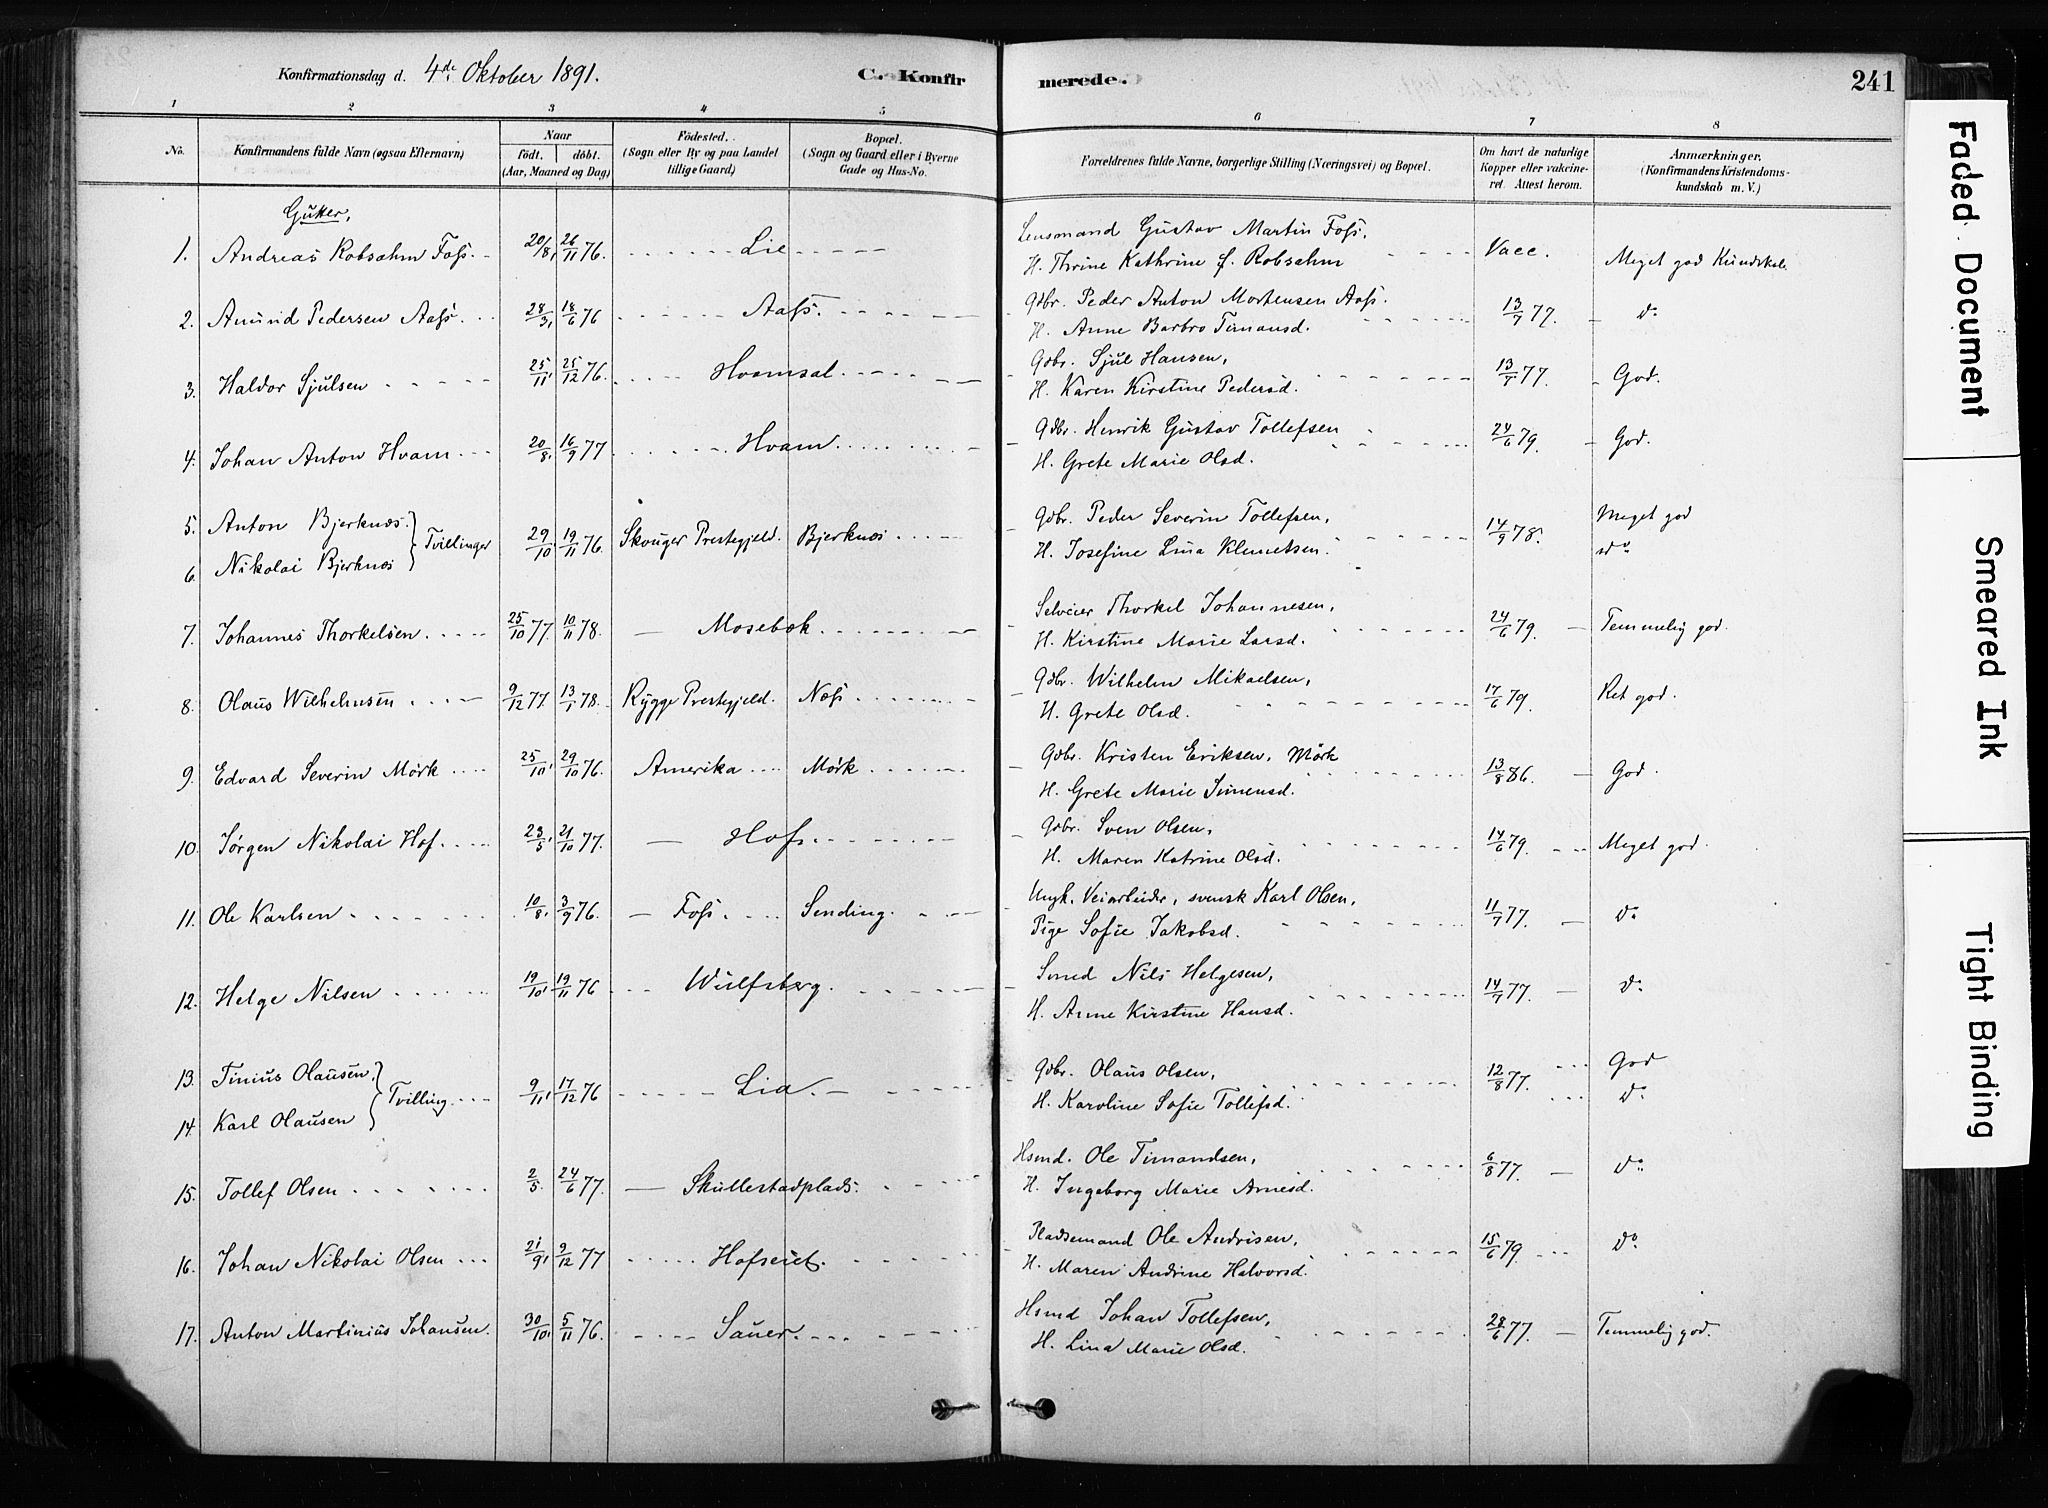 Konfirmationsdag d. 4de Oktober 1891.
C. Konfirmerede.
241
1 2 3 4 5 6 7 8
No.
Konfirmandens fulde Navn (ogsaa Efternavn)
Naar
födt. döbt.
(Aar, Maaned og Dag)
Födested.
(Sogn eller By og paa Landet
tillige Gaard)
Bopæl.
(Sogn og Gaard eller i Byerne
Gade og Hus-No.
Forældrenes fulde Navne, borgerlige Stilling (Næringsvei) og Bopæl.
Om havt de naturlige
Kopper eller vakcine-
ret. Attest herom.
Anmærkninger.
(Konfirmandens Kristendoms-
kundskab m. V.)
Gutter,
1. Andreas Robsahm Foss. 20/8, 26/11 76. Lie Lensmand Gustav Martin Foss,
H. Thrine Kathrine f. Robsahm Vacc. Meget god Kundskab
2. Amund Pedersen Aass. 28/3, 18/6 76 Aass. Gdbr. Peder Anton Mortensen Aass.
H. Anne Barbro Timansd. 13/7 77. do
3. Haldor Sjulsen 25/11, 25/12 76. Hvamsal Gdbr. Sjul Hansen,
H. Karen Kirstine Pedersd. 13/7 77. God.
4. Johan Anton Hvam 20/8, 16/9 77 Hvam Gdbr. Henrik Gustav Tollefsen
H. Grete Marie Olsd. 24/6 79. God.
5. Anton Bjerknes. Tvillinger 29/10 19/11 76. Skouger Prestegjeld. Bjerknes Gdbr. Peder Severin Tollefsen, 14/9 78. Meget god
6. Nikolai Bjerknes H. Josefine Lina Klemetsen. do
7. Johannes Thorkelsen. 25/10 77. 10/11 78. Mosebæk Selveier Thorkel Johannesen,
H. Kirstine Marie Larsd. 24/6 79. Temmelig god.
8. Olaus Wilhelmsen 9/12 77. 13/1 78. Rygge Prestegjeld. Næss Gdbr. Wilhelm Mikaelsen,
H. Grete Olsd. 17/6 79. Ret god.
9. Edvard Severin Mörk 25/10, 29/10 76. Amerika Mörk Gdbr. Kristen Eriksen, Mörk
H. Grete Marie Simensd. 13/8 86. God.
10. Jørgen Nikolai Hof. 23/5, 21/10 77. Hof Gdbr. Sven Olsen,
H. Maren Katrine Olsd. 14/6 79. Meget god.
11. Ole Karlsen 10/8, 3/9 76. Foss. Sending. Ungk. Veiarbeider, svensk Karl Olsen,
Pige Sofie Jakobsd. 11/7 77. do
12. Helge Nilsen 19/10, 19/11 76 Wulfsberg. Smed Nils Helgesen,
H. Anne Kirstine Hansd. 14/7 77. do
13. Tinius Olausen, Tvilling 9/11, 17/12 76 Lia. Gdbr. Olaus Olsen, 12/8 77. God
14. Karl Olausen H. Karoline Sofie Tollefsd. do
15. Tollef Olsen 2/5. 24/6 77. Skullestadplads. Hsmd. Ole Timandsen,
H. Ingeborg Marie Arnesd. 6/8 77. do
16. Johan Nikolai Olsen 21/9, 9/12 77 Hofseiet. Pladsemand Ole Andrisen,
H. Maren Andrine Halvorsd. 15/6 79 do
17. Anton Martinius Johansen. 30/10, 5/11 76. Sauer. Hsmd Johan Tollefsen,
H. Lina Marie Olsd. 28/6 77. Temmelig god.
Faded Document
Smeared Ink
Tight Binding